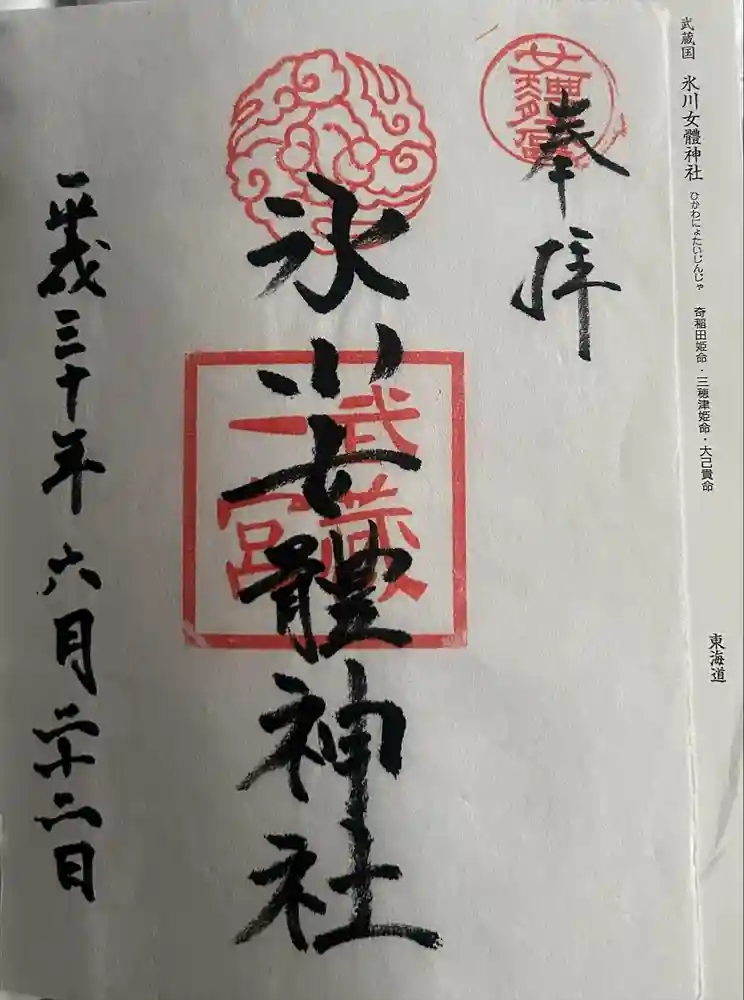 武蔵国 氷川女體神社 ひかわにょたいじんじゃ 奇稲田姫命・三穂津姫命・大己貴命
東海道
奉拝
氷川女體神社
武蔵
一宮
平成三十年六月二十二日